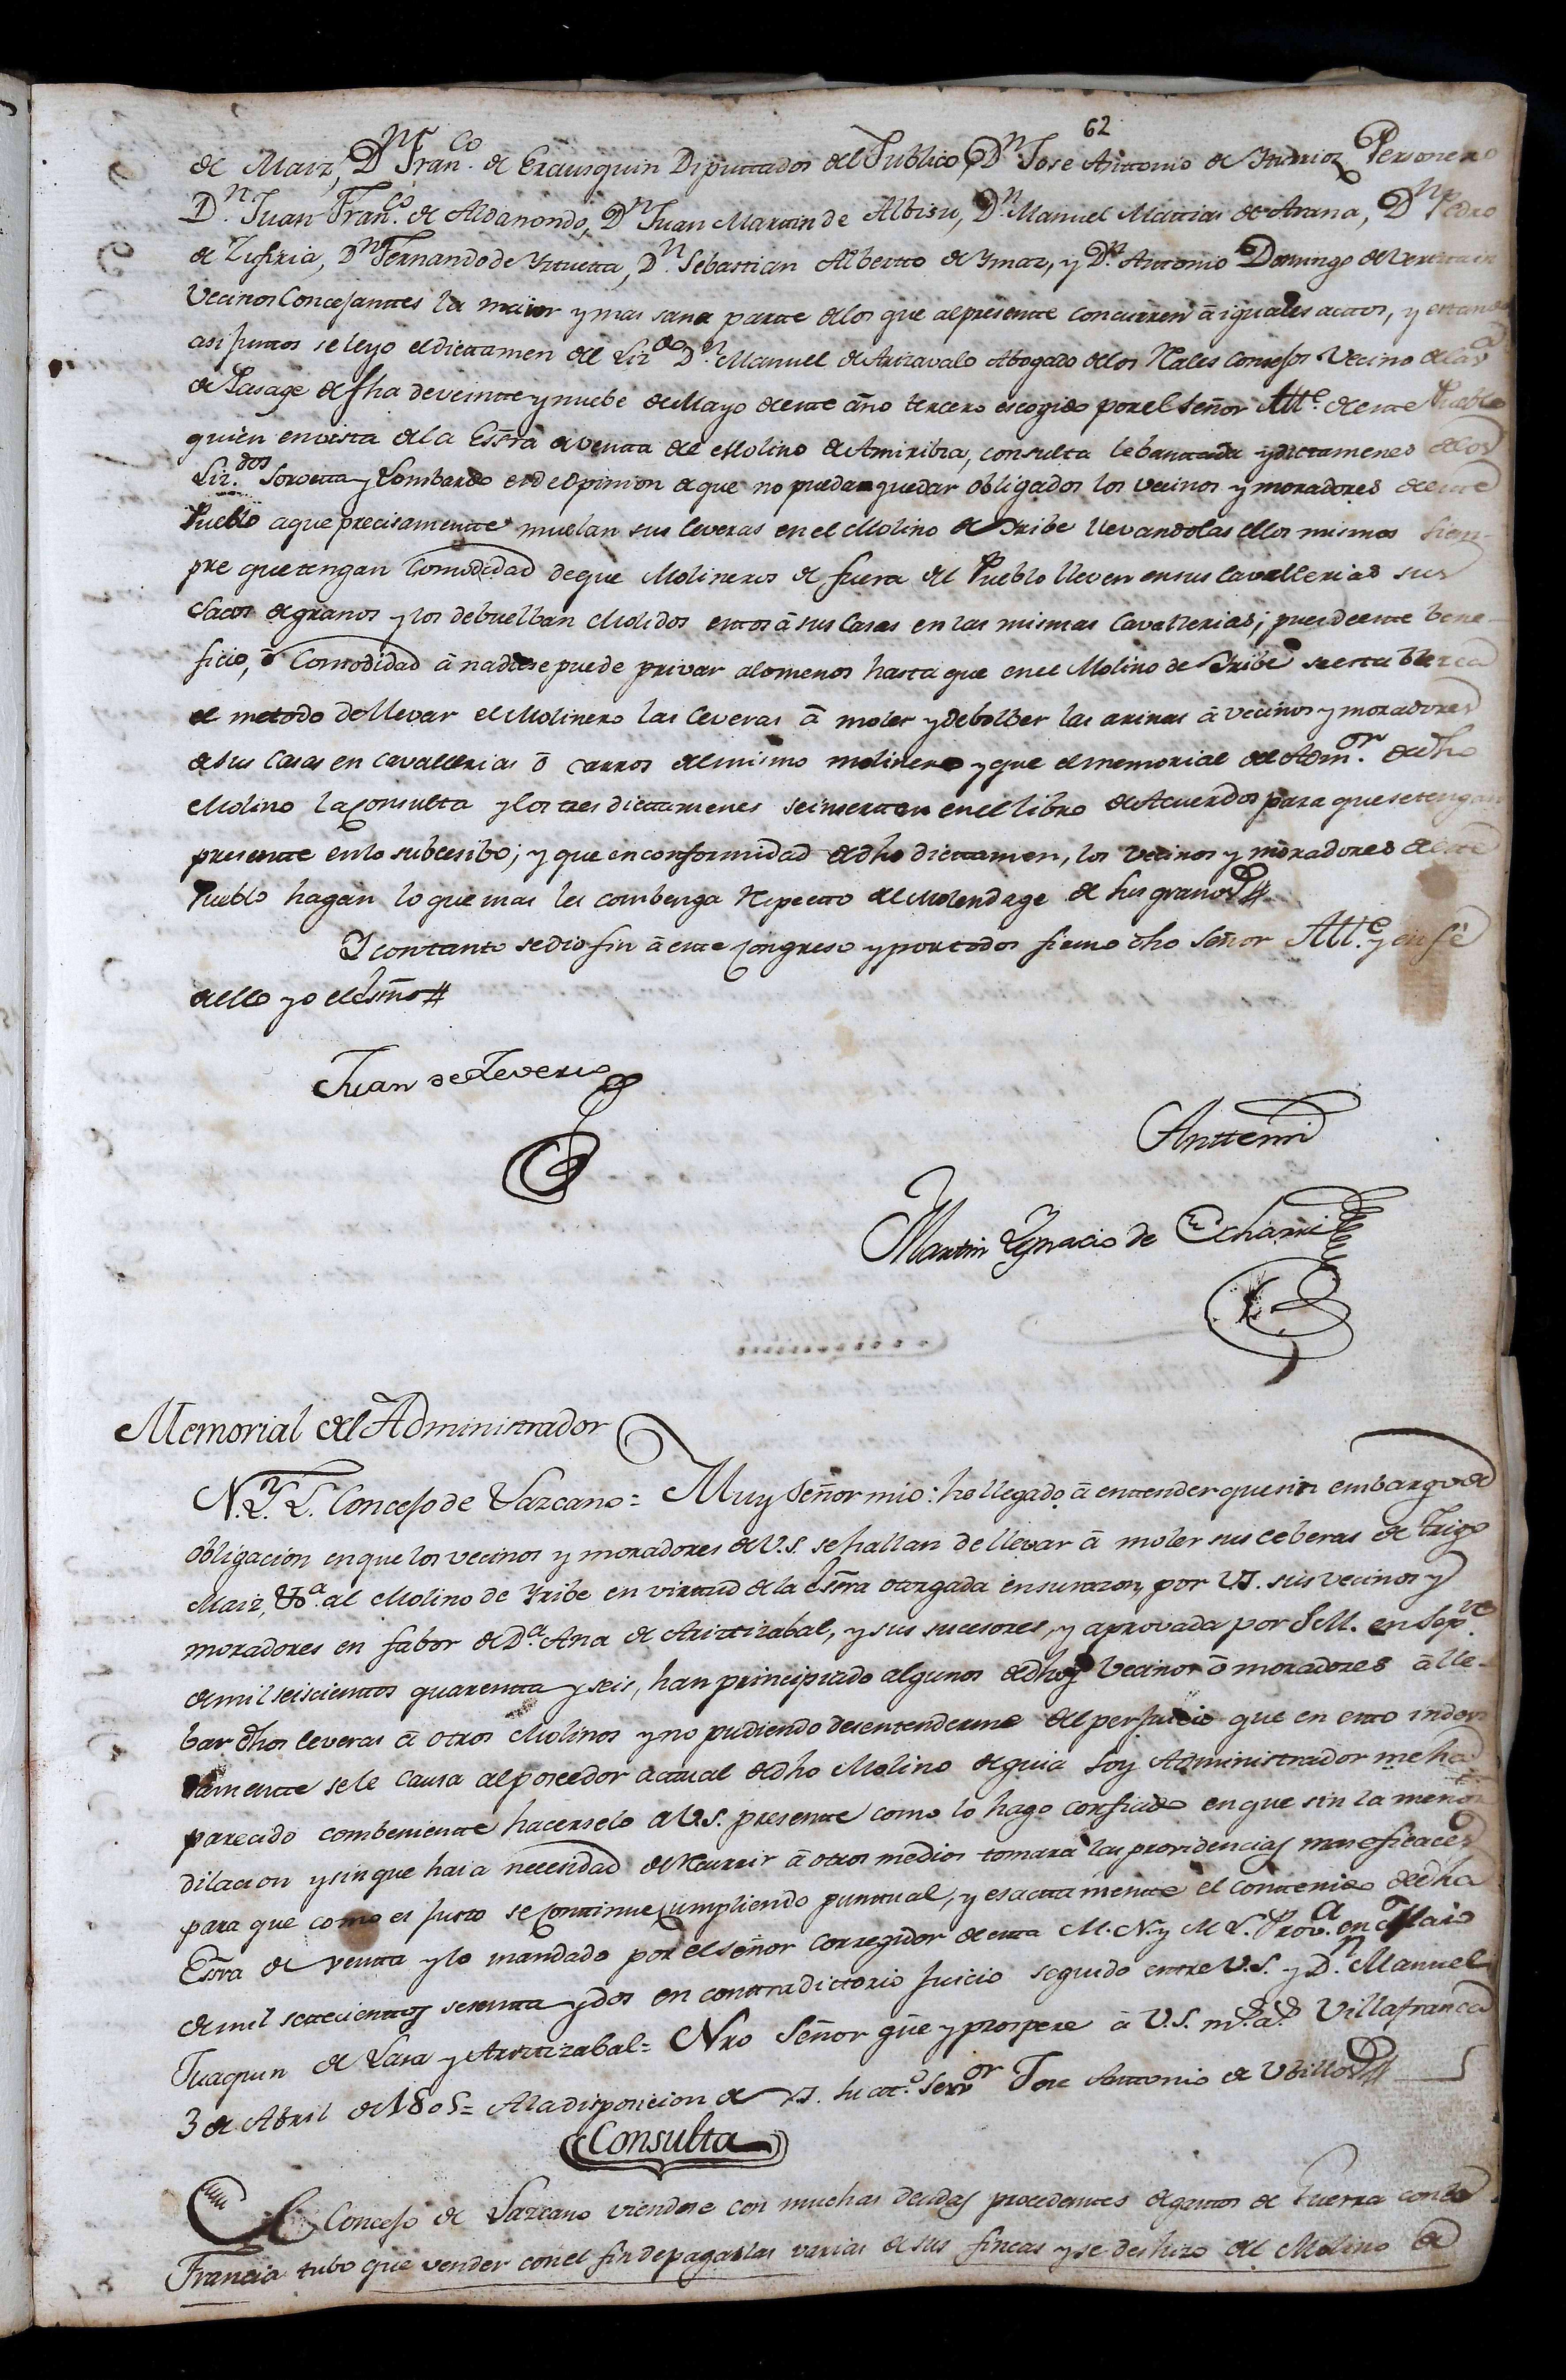 62
de Maiz, Dn Franco. de Erausquin Diputtados del Publico, Dn Jose Anttonio de Yturrioz Personero
Dn. Juan Franco. de Aldanondo, Dn Juan Martin de Albisu, Dn. Manuel Mattias de Arana, Dn Pedro
de Zufiria, Dn Fernando de Yttuetta, Dn. Sebastian Albertto de Ymaz, y Dn. Antonio Domingo de
Vecinos Concejanttes la maior y mas sana partte de los que al presentte concurren â iguales acttos, y estando
asi junttos se leyo el dicttamen del Lizdo Dn. Manuel de Arizavalo Abogado de los Rales Consejos Vecino de la va
de Pasage de fha de veintte y nuebe de Mayo de estte año tercero escogido por el señor Alle. de estte Pueblo
quien en vista de la Essra de ventta del Molino de Amiribia, consulta lebanttada y dictamenes de los
Liz.dos Soroetta y Lombardo es de opinion de que no puedan quedar obligados los vecinos y moradores de estte
Pueblo a que precisamentte muelan sus ceveras en el Molino de Yribe llevandolas ellos mismos siem-
pre que tengan comodidad de que Molineros de fuera del Pueblo lleven en sus cavallerias sus
sacos de granos y los debuelban Molidos esttos â sus Casas en las mismas Cavallerias; pues de estte bene-
ficio, ô Comodidad â nadie se puede privar alomenos hasta que en el Molino de Yribe se establezca
el metodo de llevar el Molinero las Ceveras â moler y debolber las arinas â vecinos y moradores
de sus Casas en cavallerias ô carros del mismo molinero y que el memorial del Admor. de dho
Molino la consulta y los tres dicttamenes se inserten en el libro de Acuerdos para que se tengan
presentte en lo subcesibo; y que en conformidad de dho dicttamen, los Vecinos y moradores de estte
Pueblo hagan lo que mas les combenga respectto del Molendage de sus granos #
Y con tanto se dio fin â estte congreso y por todos firmo dho señor Alle. y en fê
de ello yo el Esño #
Juan de Zeverio
Anttemi
Martin Ygnacio de Echarri
Memorial del Administrador
N. Y. L. Concejo de Lazcano = Muy señor mio: he llegado â entender que sin embargo de
obligacion en que los vecinos y moradores de V.S. se hallan de llevar â moler sus ceberas de trigo
Maiz, &a. al Molino de Yribe en virtud de la Essra otorgada en su razon, por VS. sus vecinos y
moradores en fabor de Da. Ana de Aristtizabal, y sus sucesores, y aprovada por S M. en Sepre.
de mil seiscienttos quarentta y seis, han principiado algunos de dhos Vecinos ô moradores â lle-
bar dhas ceveras â otros Molinos y no pudiendo desentenderme del perjuicio que en estto indevi
damentte se le causa al poseedor actual de dho Molino de quia soy Administrador me ha
parecido combenientte hacerselo a V.S. presentte como lo hago confiado en que sin la menor
dilacion y sin que haia necesidad de recurrir â otros medios tomara las providencias mas eficaces
para que como es justo se conttinue cumpliendo punttual, y esacttamentte el conttenido de dha
Essra de ventta y lo mandado por el señor Corregidor de estta M. N. y M. L. Prova. en Maio
de mil settecienttos sesentta y dos en conttradictorio Juicio seguido entre V.S. y Dn. Manuel
Juaquin de Lasa y Aristtizabal = Nro Señor gûe y prospere â V.S. ms. as. Villafranca
3 de Abril de 1805 = A la disposicion de VS. su att.o servor Jose Anttonio de Ubillos #
Consulta
El Concejo de Lazcano viendose con muchas deudas procedentes de gastos de Guerra con la
Francia tubo que vender con el fin de pagarlas varias de sus fincas y se deshizo del Molino de